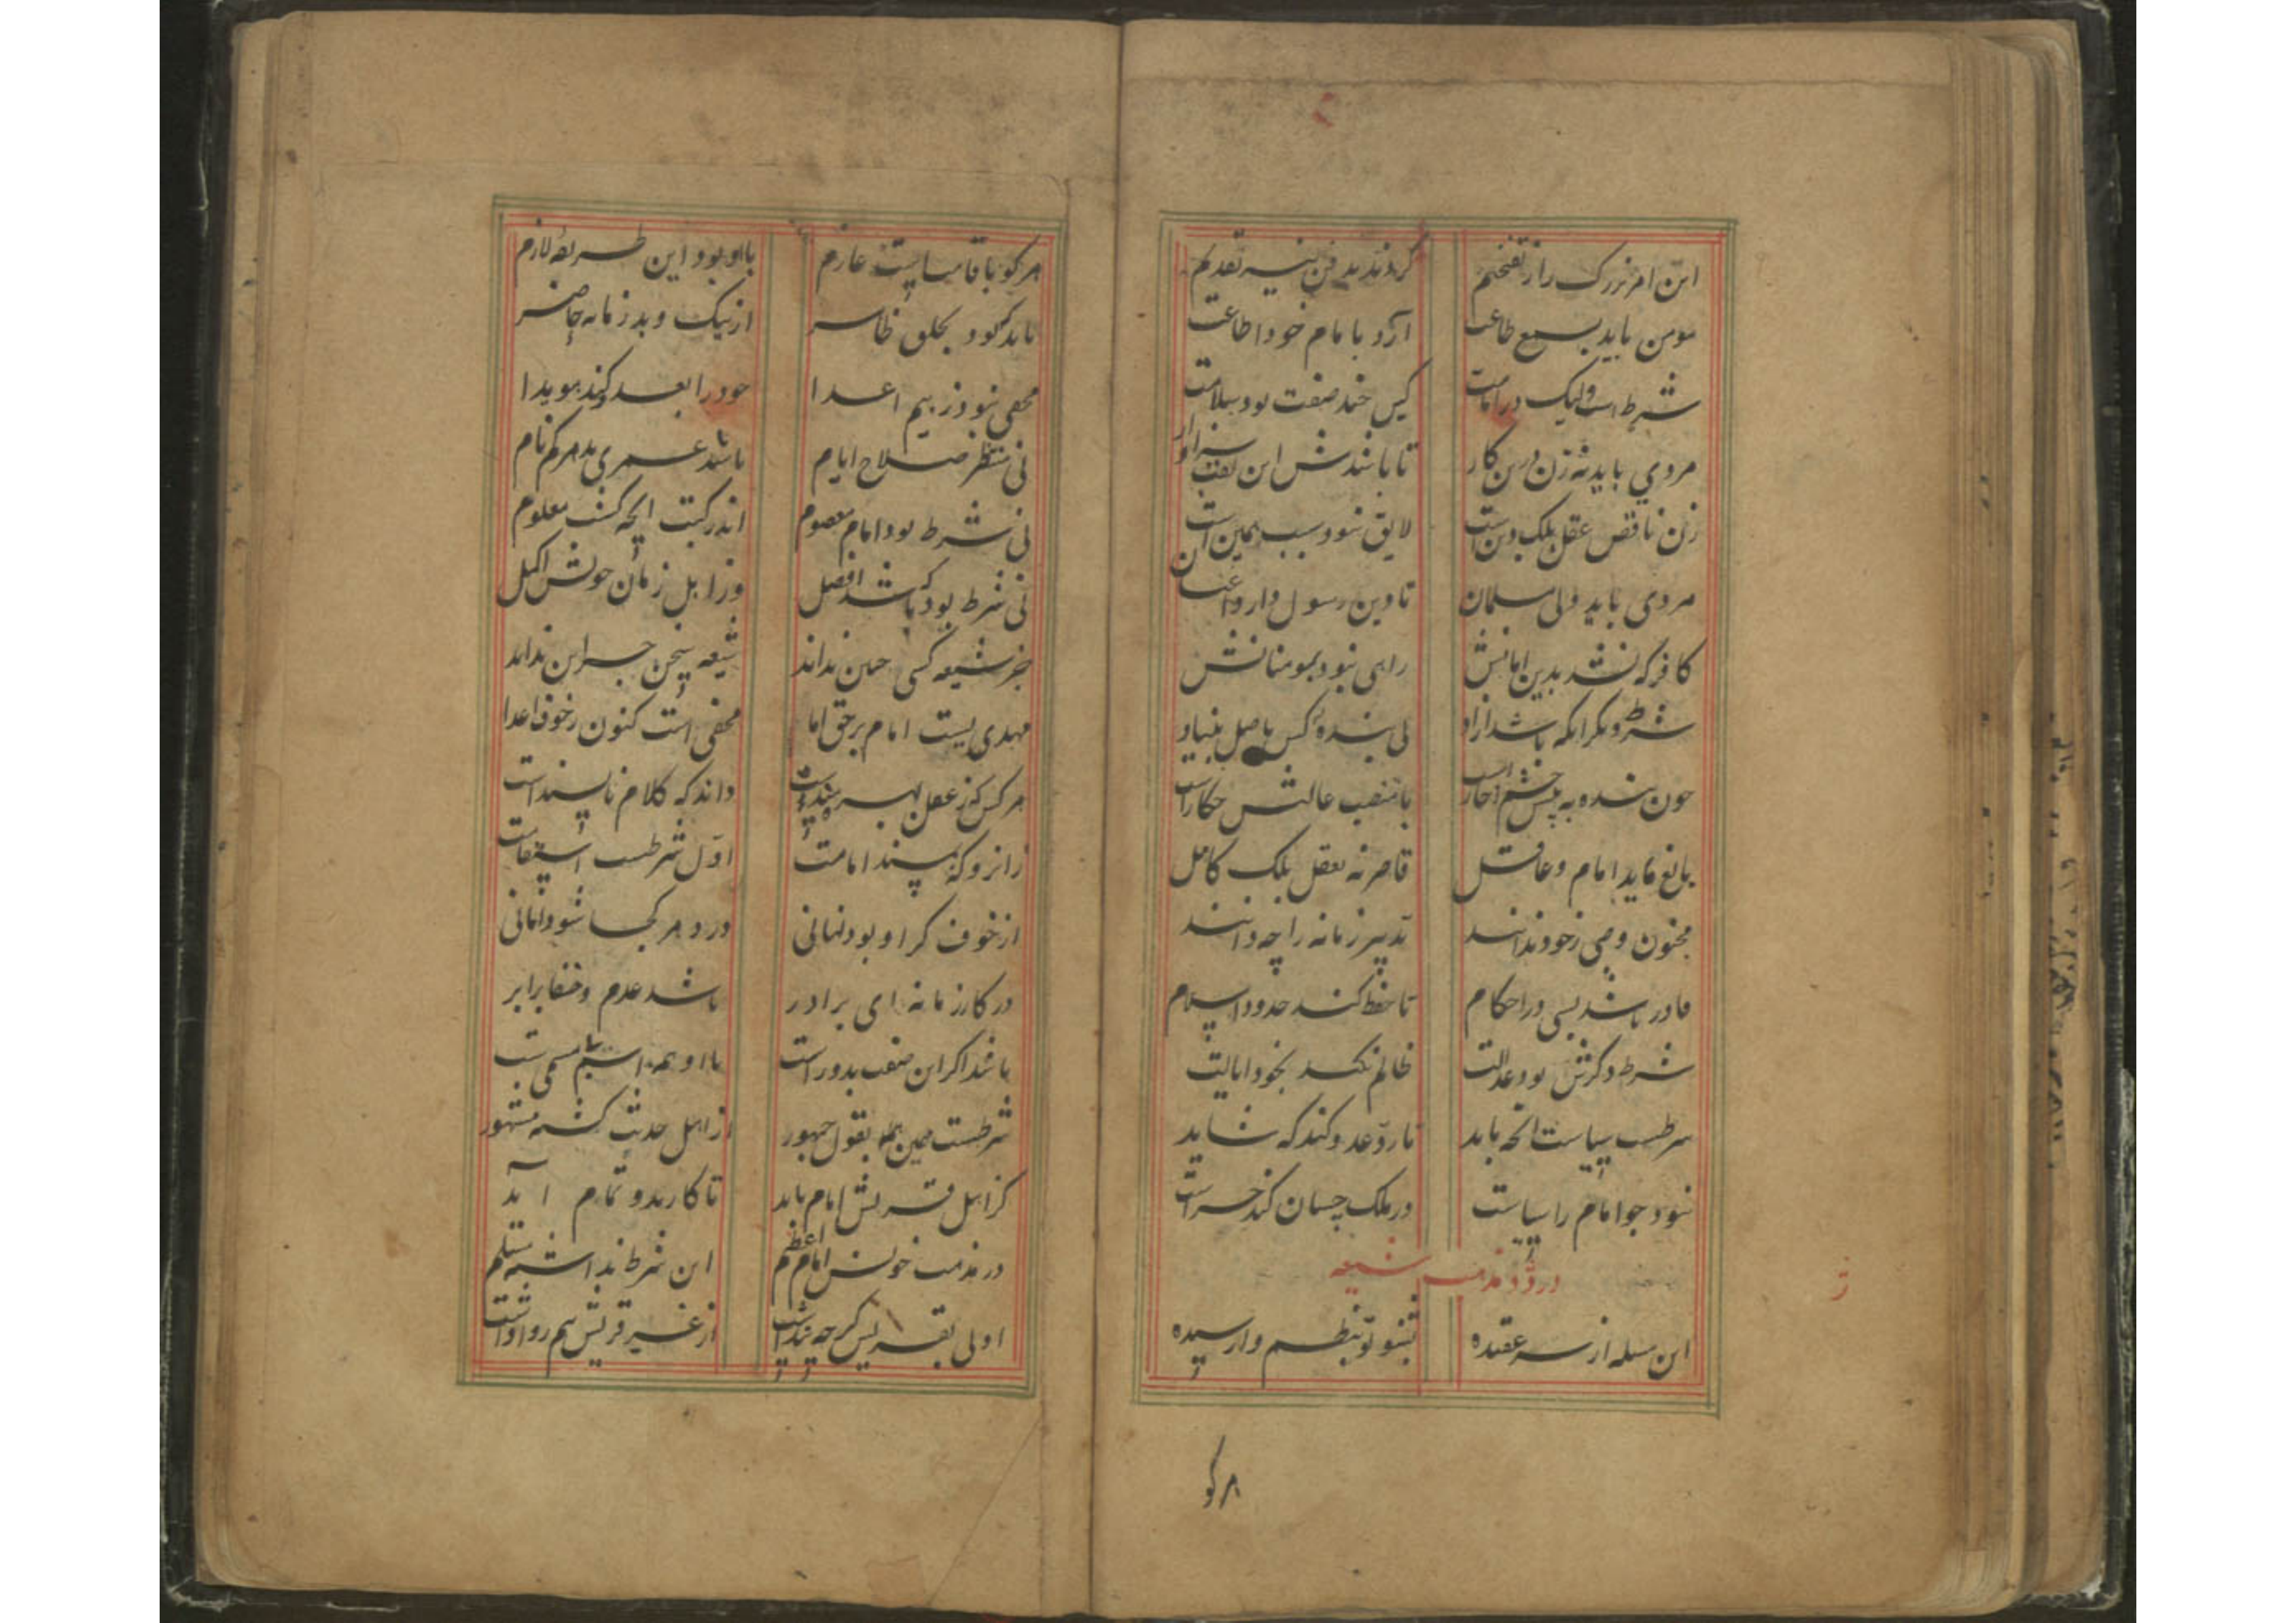 این امر بزرگ را ز تفخیم کردند بدفن نیز تقدیم
مومن باید بسمع طاعت آرد با امام خود اطاعت
شرط است ولیک در امامت کین چند صفت بود سلامت
مردی باید نه زن درین کار تا باشدش این لقب سزاوار
زن ناقص عقل بلک دین است لایق نبود سبب همین است
مردی باید ولی مسلمان تا دین رسول دارد
کافر که نشد بدین امانش راهی نبود بمومنانش
شرط دگر انکه باشد ازاد نی بنده کس باصل بنیاد
چون بنده به پیش چشم با منصب عالیش چکار است
بالغ باید امام و عاقل قاصر نه بعقل بلک کامل
مجنون و صبی ز خود ندانند تدبیر زمانه را چه دانند
قادر باشد بسی در احکام تا حفظ کند حدود اسلام
شرط دگرش بود عدالت ظالم نکند بخود ایالت
شرطست سیاست انچه باید تا رد عدو کند که شاید
نبود چو امام را سیاست در ملک چسان کند حراست
در رد مذهب شیعه
این مسله از سر عقیده بشنو تو بنظم وارسیده
هر کو
هر کو باقامتست عازم با او بود این طریقه لازم
باید که بود بخلق ظاهر از نیک و بد زمانه حاضر
مخفی نبود ز بیم اعدا خود را بعد کند هویدا
نی منتظر صلاح ایام باشد عمری بدهر کم نام
نی شرط بود امام معصوم اندر کتب انچه کشت معلوم
نی شرط بود که باشد افضل وز اهل زمان خویش اکمل
جز شیعه کسی چنین نداند شیعه سخن جز این نداند
مهدی است امام بر حق اما مخفی است کنون ز خوف اعدا
هر کس که ز عقل بهره منداست داند که کلام ناپسند است
زانرو که پسند امامت اول شرطست استقامت
از خوف کر او بود نهانی در دهر کجا شود امانی
در کار زمانه ای برادر باشد عدم و خفا برابر
باشد اکر این صفت بدور است با او همه
شرطست همین همه بقول جمهور از اهل حدیث کشته مشهور
کز اهل قریش امام باید تا کار بدو تمام آید
در مذهب خویش امام اعظم این شرط نداشته مسلم
اولی بقریش کرچه پنداشت از غیر قریش هم روا داشت